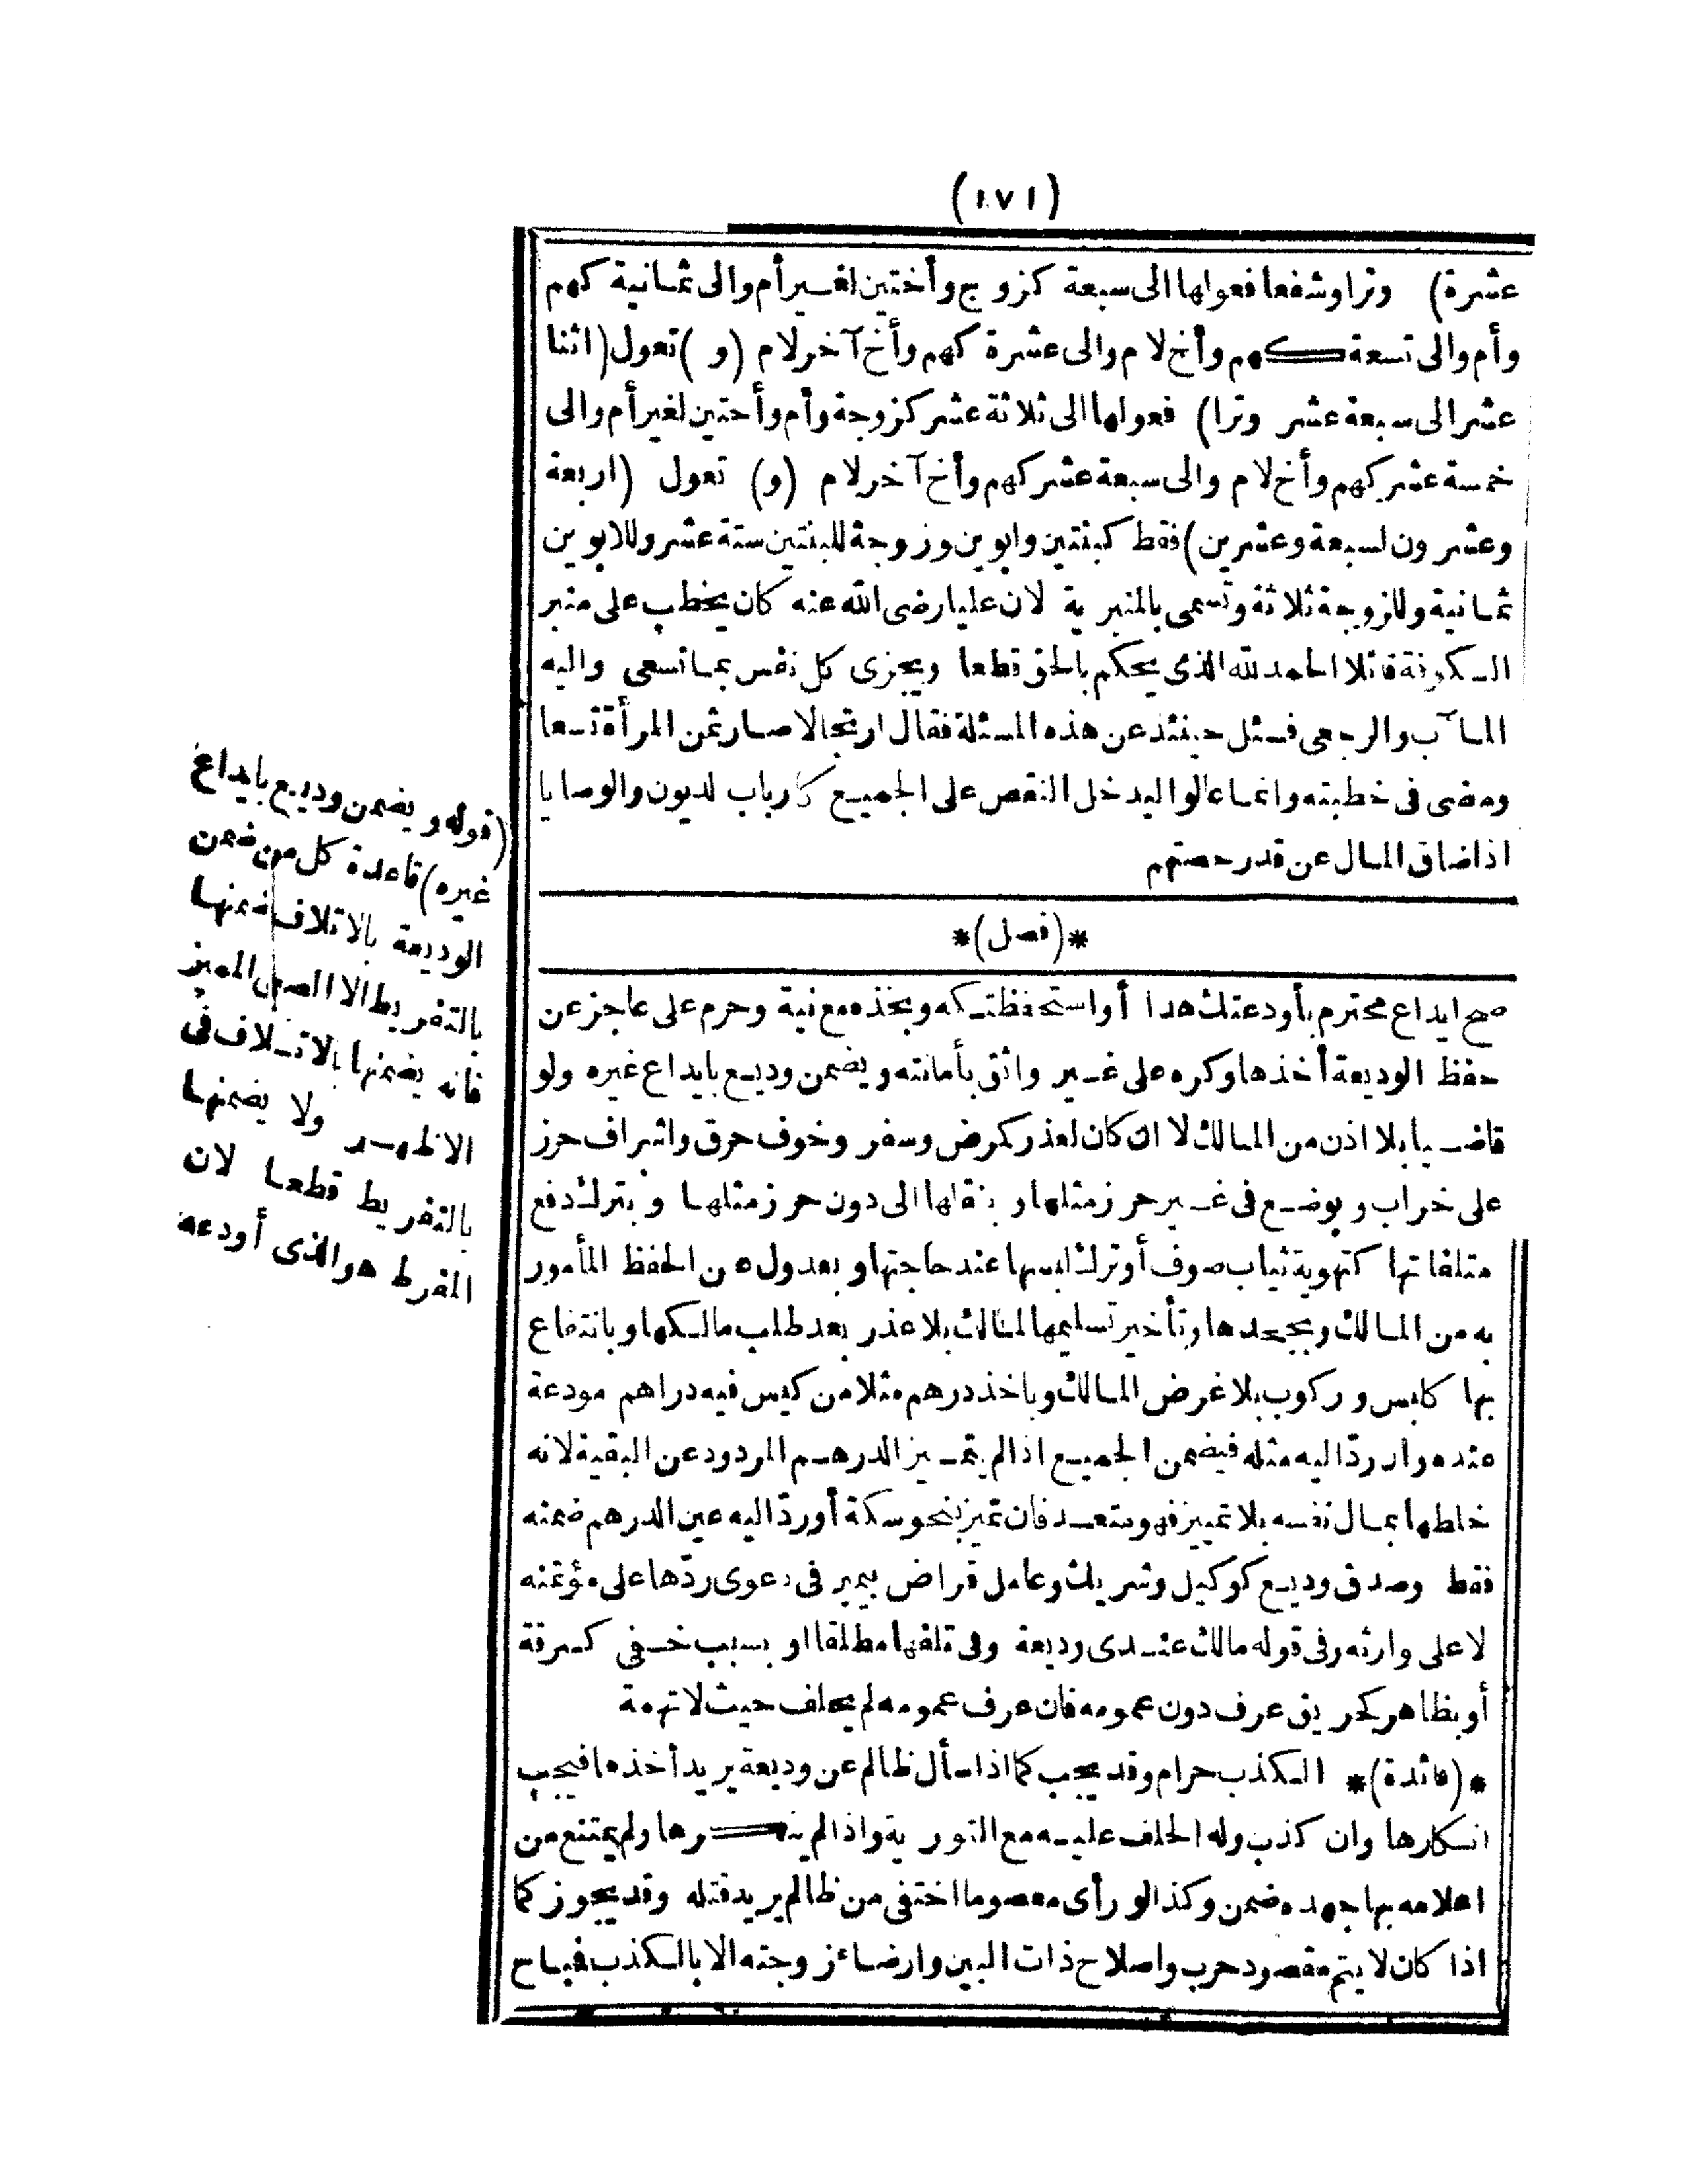 (١٧١)
عشرة) وتراوشفعا فعولها الى سبعة كزوج وأختين لغير أم والى ثمانية كهم
وأم والى تسعة كهم وأخ لام والى عشرة كهم وأخ آخر لام (و) تعول (اثنا
عشر الى سبعة عشر وترا) فعولها الى ثلاثة عشر كزوجة وأم وأختين لغير أم والى
خمسة عشر كهم وأخ لام والى سبعة عشر كهم وأخ آخر لام (و) تعول (اربعة
وعشرون لسبعة وعشرين) فقط كبنتين وابوين وزوجة للبنتين ستة عشر وللابوين
ثمانية وللزوجة ثلاثة وتسمى بالمنبرية لان عليا رضى الله عنه كان يخطب على منبر
الكوفة قائلا الحمد لله الذى يحكم بالحق قطعا ويجزى كل نفس بما تسعى واليه
المآب والرجعى فسئل حينئذ عن هذه المسئلة فقال ارتجالا صار ثمن المرأة تسعا
ومضى فى خطبته وانما عالوا ليدخل النقص على الجميع كارباب لديون والوصايا
اذا ضاق المال عن قدر حصتهم
*(فصل)*
صح ايداع محترم بأودعتك هذا أو استحفظتكه وبخذه مع نية وحرم على عاجز عن
حفظ الوديعة أخذها وكره على غير واثق بأمانته ويضمن وديع بايداع غيره ولو
قاضيا بلا اذن من المالك لا ان كان لعذر كمرض وسفر وخوف حرق واشراف حرز
على خراب وبوضع فى غير حرز مثلها وبنقلها الى دون حرز مثلها وبترك دفع
متلفاتها كتهوية ثياب صوف أو ترك لبسها عند حاجتها وبعدول عن الحفظ المأمور
به من المالك وبجحدها وتأخير تسليمها لمالك بلا عذر بعد طلب مالكها وبانتفاع
بها كلبس وركوب بلا غرض المالك وباخذ درهم مثلا من كيس فيه دراهم مودعة
عنده وان ردّ اليه مثله فيضمن الجميع اذا لم يتميز الدرهم المردود عن البقية لانه
خلطها بمال نفسه بلا تمييز فهو متعد فان تميز بنحو سكة أو ردّ اليه عين الدرهم ضمنه
فقط وصدق وديع كوكيل وشريك وعامل قراض بيمين فى دعوى ردّها على مؤتمنه
لا على وارثه وفى قوله مالك عندى وديعة وفى تلفها مطلقا او بسبب خفى كسرقة
أو بظاهر كحريق عرف دون عمومه فان عرف عمومه لم يحلف حيث لا تهمة
*(فائدة)* الكذب حرام وقد يجب كما اذا سأل ظالم عن وديعة يريد أخذها فيجب
انكارها وان كذب وله الحلف عليه مع التورية واذا لم ينكرها ولم يمتنع من
اعلامه بها جهده ضمن وكذا لو رأى معصوما اختفى من ظالم يريد قتله وقد يجوز كما
اذا كان لا يتم مقصود حرب واصلاح ذات البين وارضاء زوجته الا بالكذب فمباح
(قوله ويضمن وديع بايداع
غيره) قاعدة كل من ضمن
الوديعة بالاتلاف ضمنها
بالتفريط الا الصبى المميز
فانه يضمنها بالاتلاف فى
الاظهر ولا يضمنها
بالتفريط قطعا لان
المفرط هو الذى أودعه